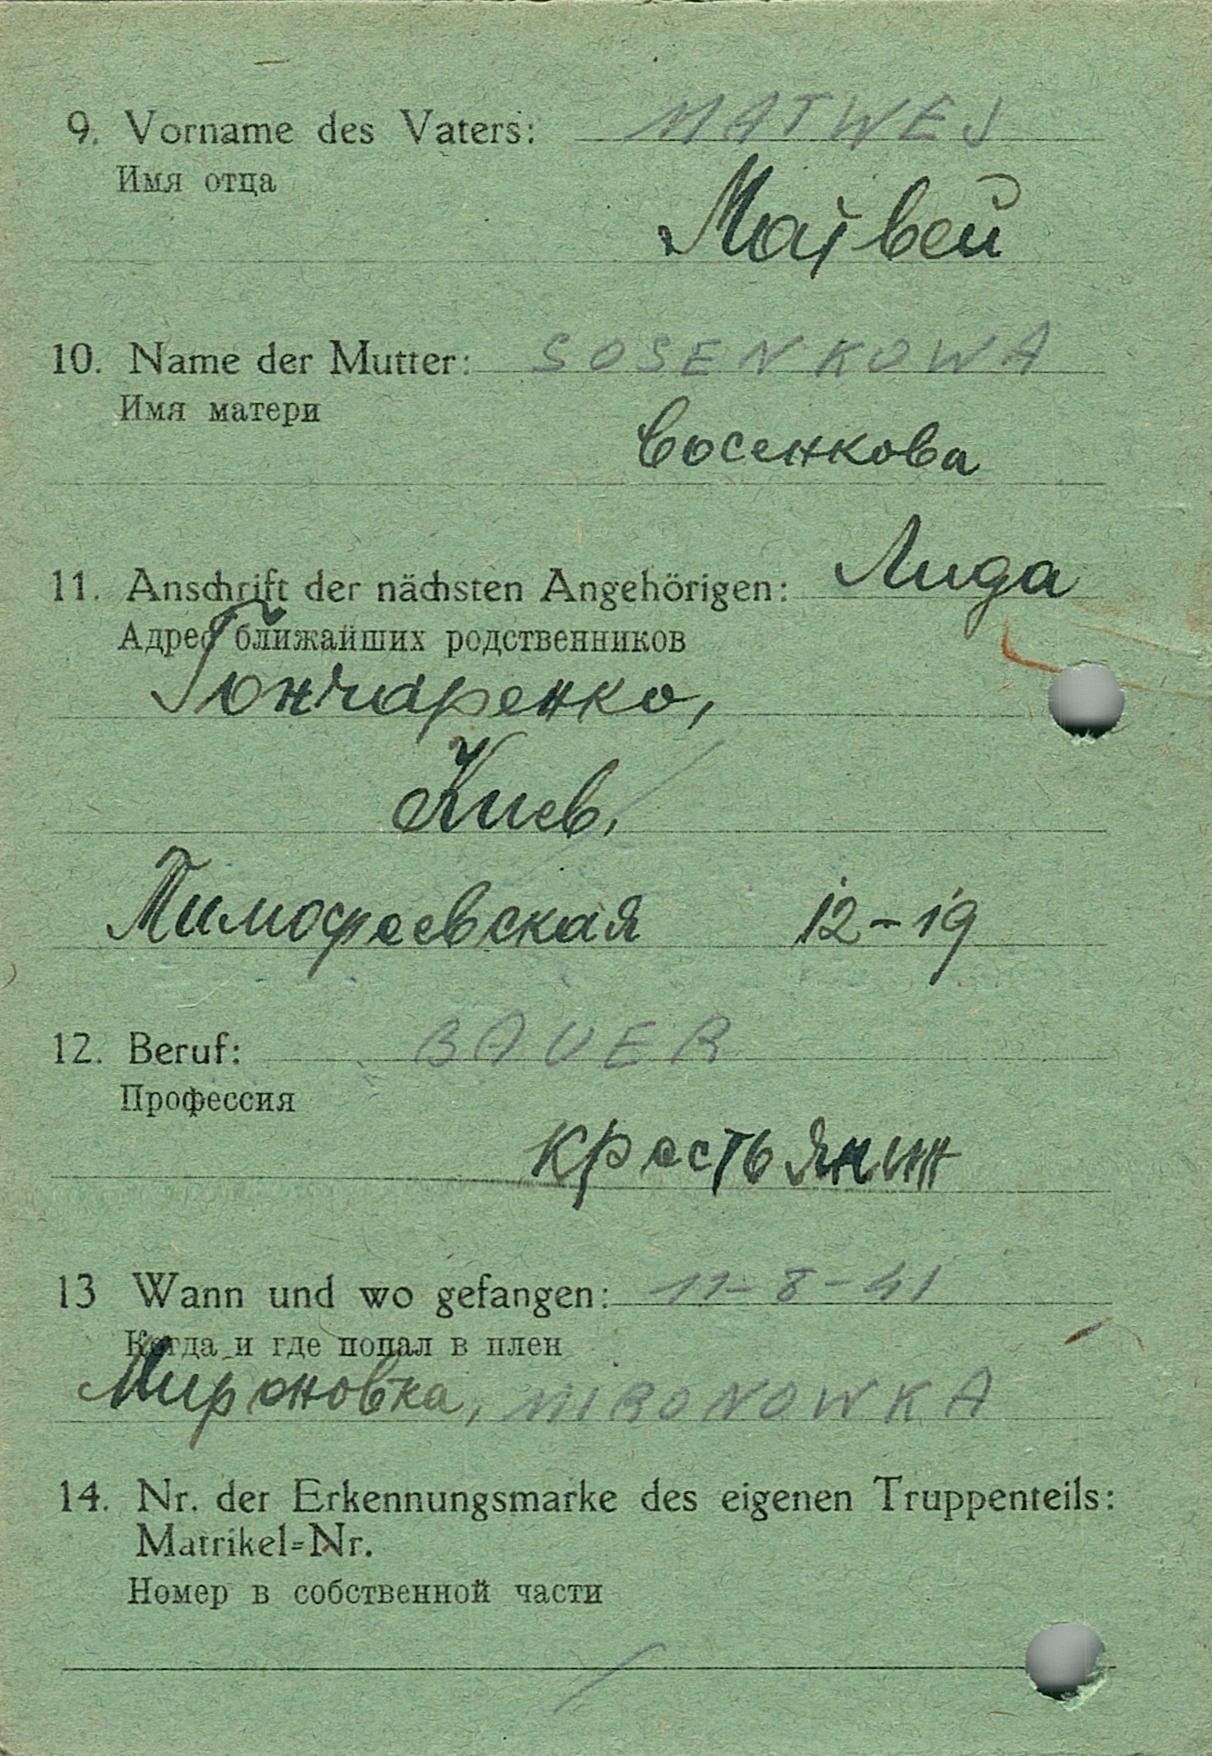 9. Vorname des Vaters: MATWEJ
Имя отца
Матвей
10. Name der Mutter: SOSENKOWA
Имя матери
Сосенкова
11. Anschrift der nächsten Angehörigen: Лида
Адрес ближайших родственников
Гончаренко,
Киев,
Тимофеевская 12-19
12. Beruf: BAUER
Профессия
крестьянин
13 Wann und wo gefangen: 11-8-41
Когда и где попал в плен
Мироновка, MIRONOWKA
14. Nr. der Erkennungsmarke des eigenen Truppenteils:
Matrikel=Nr.
Номер в собственной части